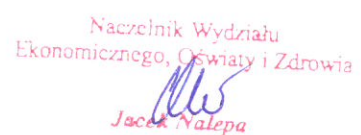 Naczelnik Wydziału
Ekonomicznego, Oświaty i Zdrowia
Jacek Nalepa